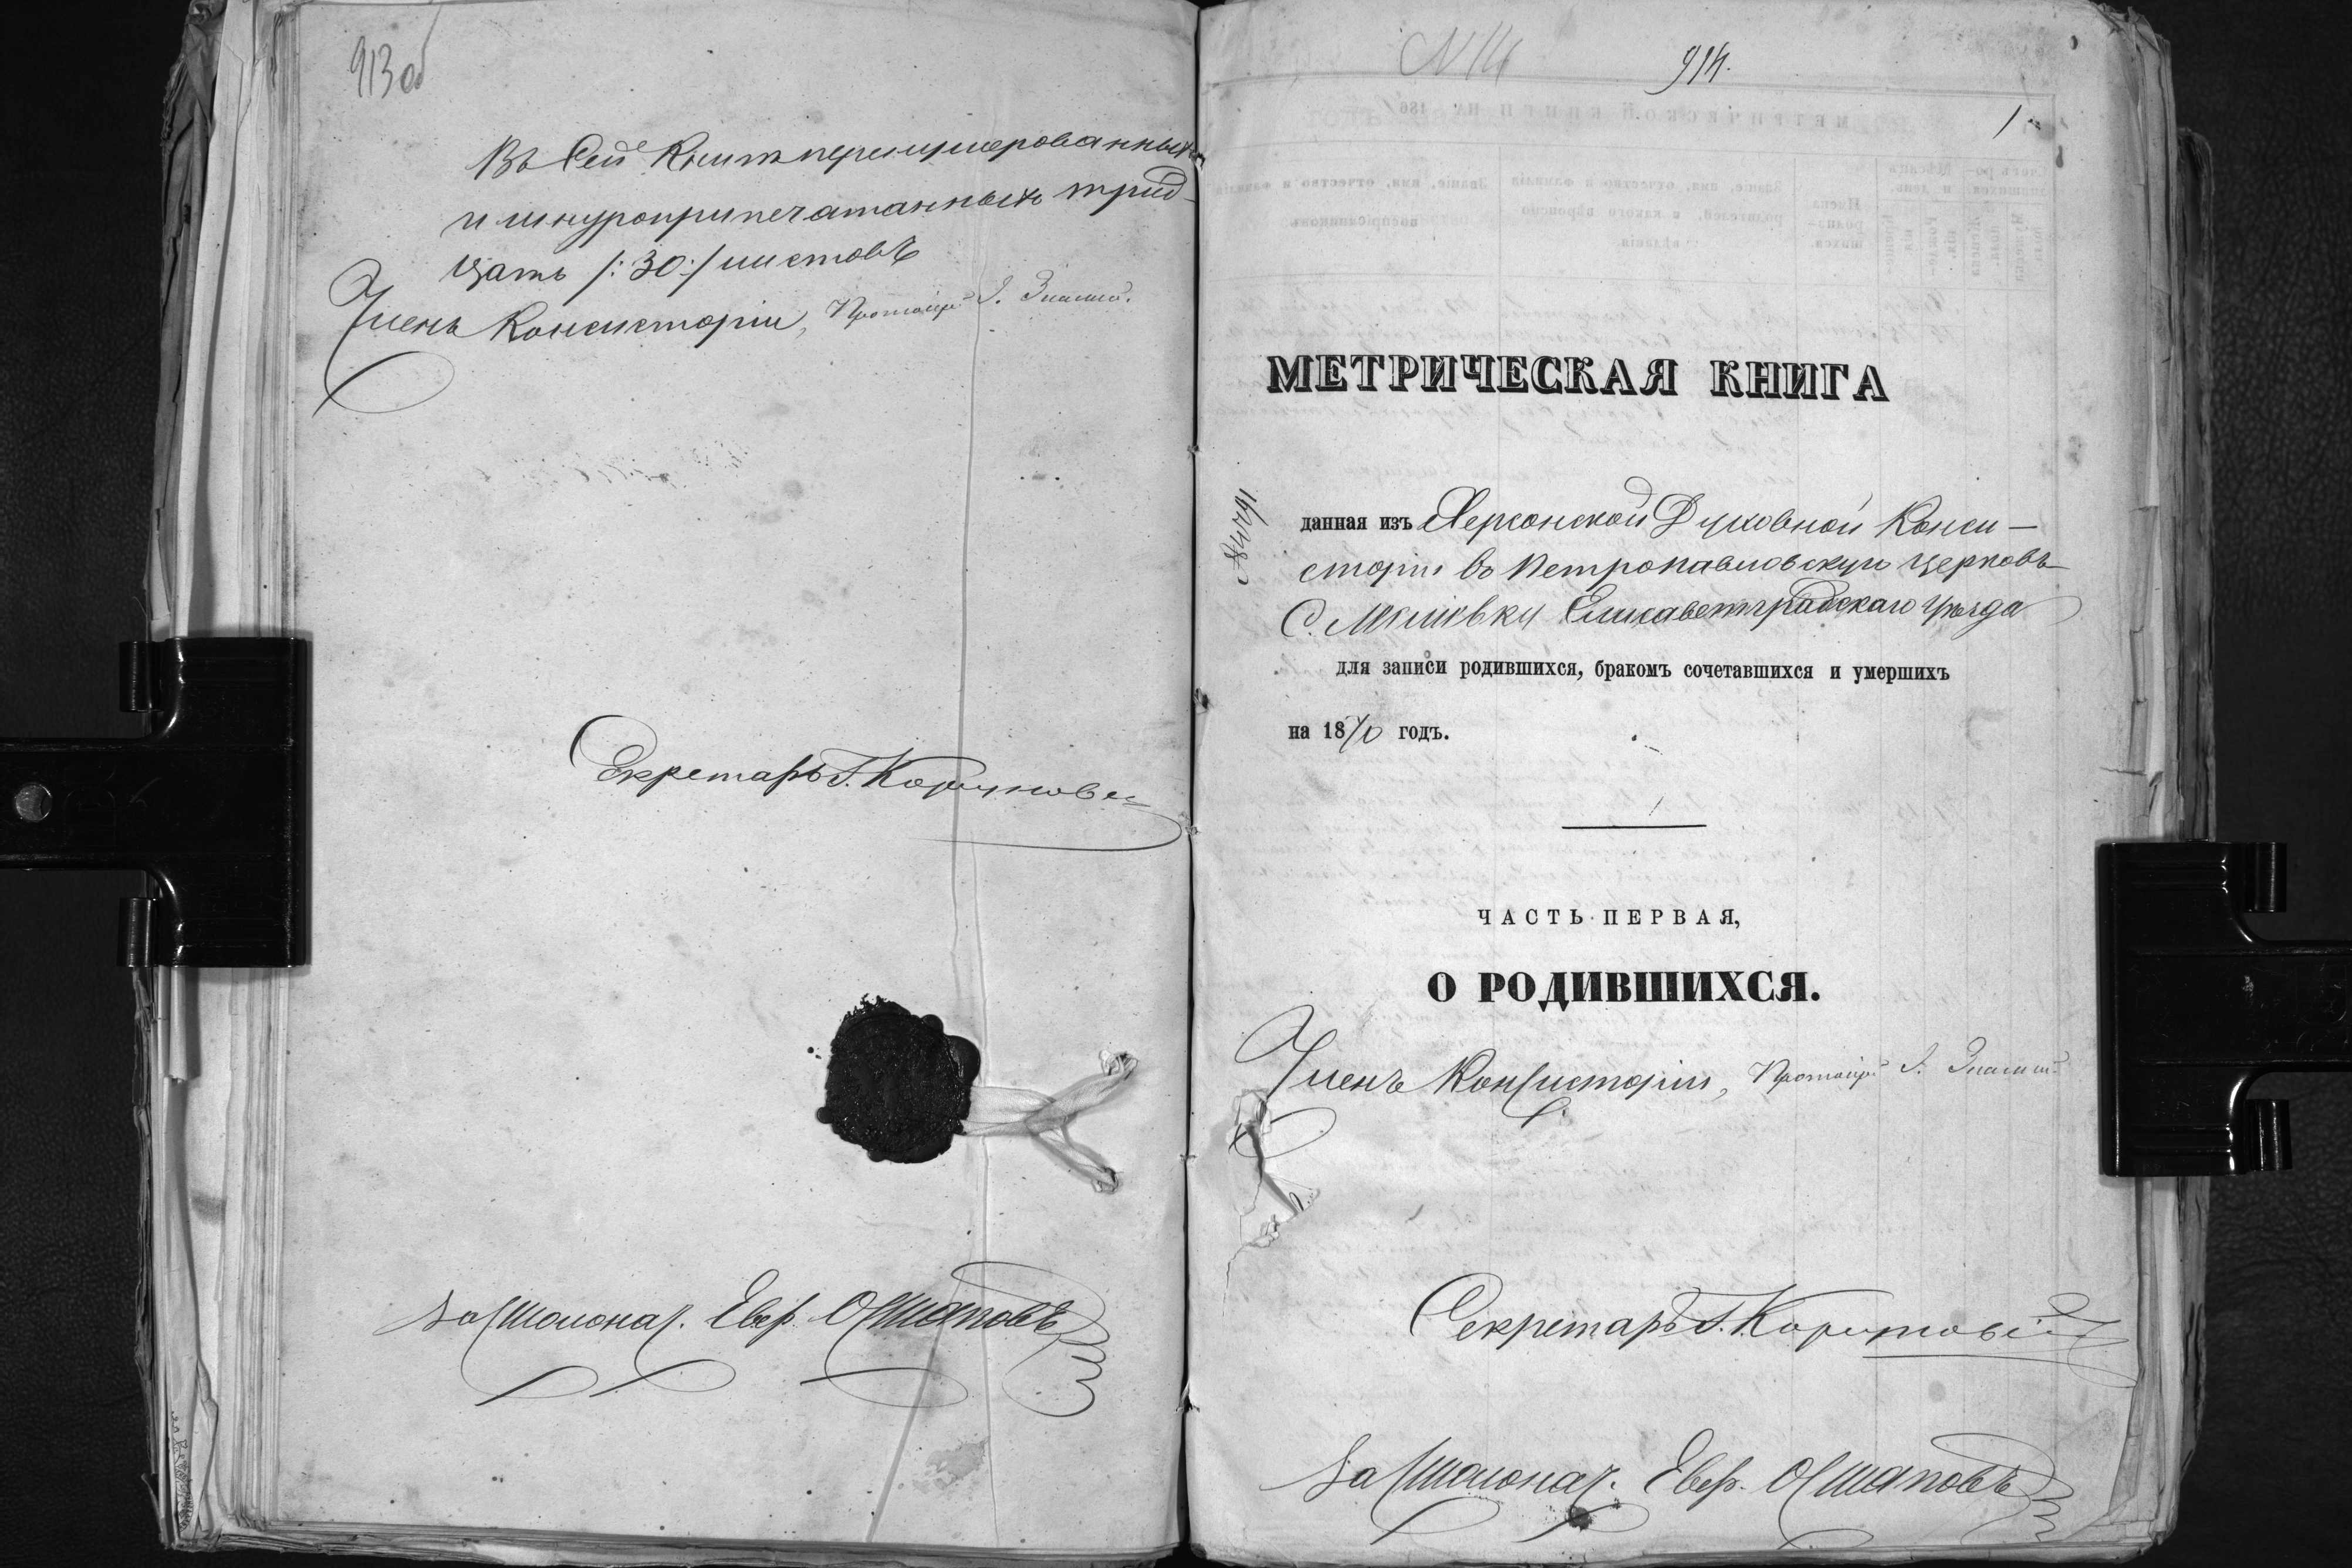 913 об
Въ сей книгѣ перенумерованныхъ
и шнуроприпечатанныхъ трид-
цать /:30:/ листовъ
Членъ Консисторіи, Протоіерей І. Знамен.
Секретарь І. Коруновс
За Столонач. Евер. Остаповъ
N 14
914.
1
МЕТРИЧЕСКАЯ КНИГА
данная изъ Херсонской Духовной Конси-
сторіи въ Петропавловскую церковь
С. Елисаветградскаго уѣзда
для записи родившихся, бракомъ сочетавшихся и умершихъ
на 1870 годъ.
ЧАСТЬ ПЕРВАЯ,
О РОДИВШИХСЯ.
Членъ Консисторіи, Протоіерей І. Знамен.
Секретарь І.
За Столонач. Евер. Остаповъ